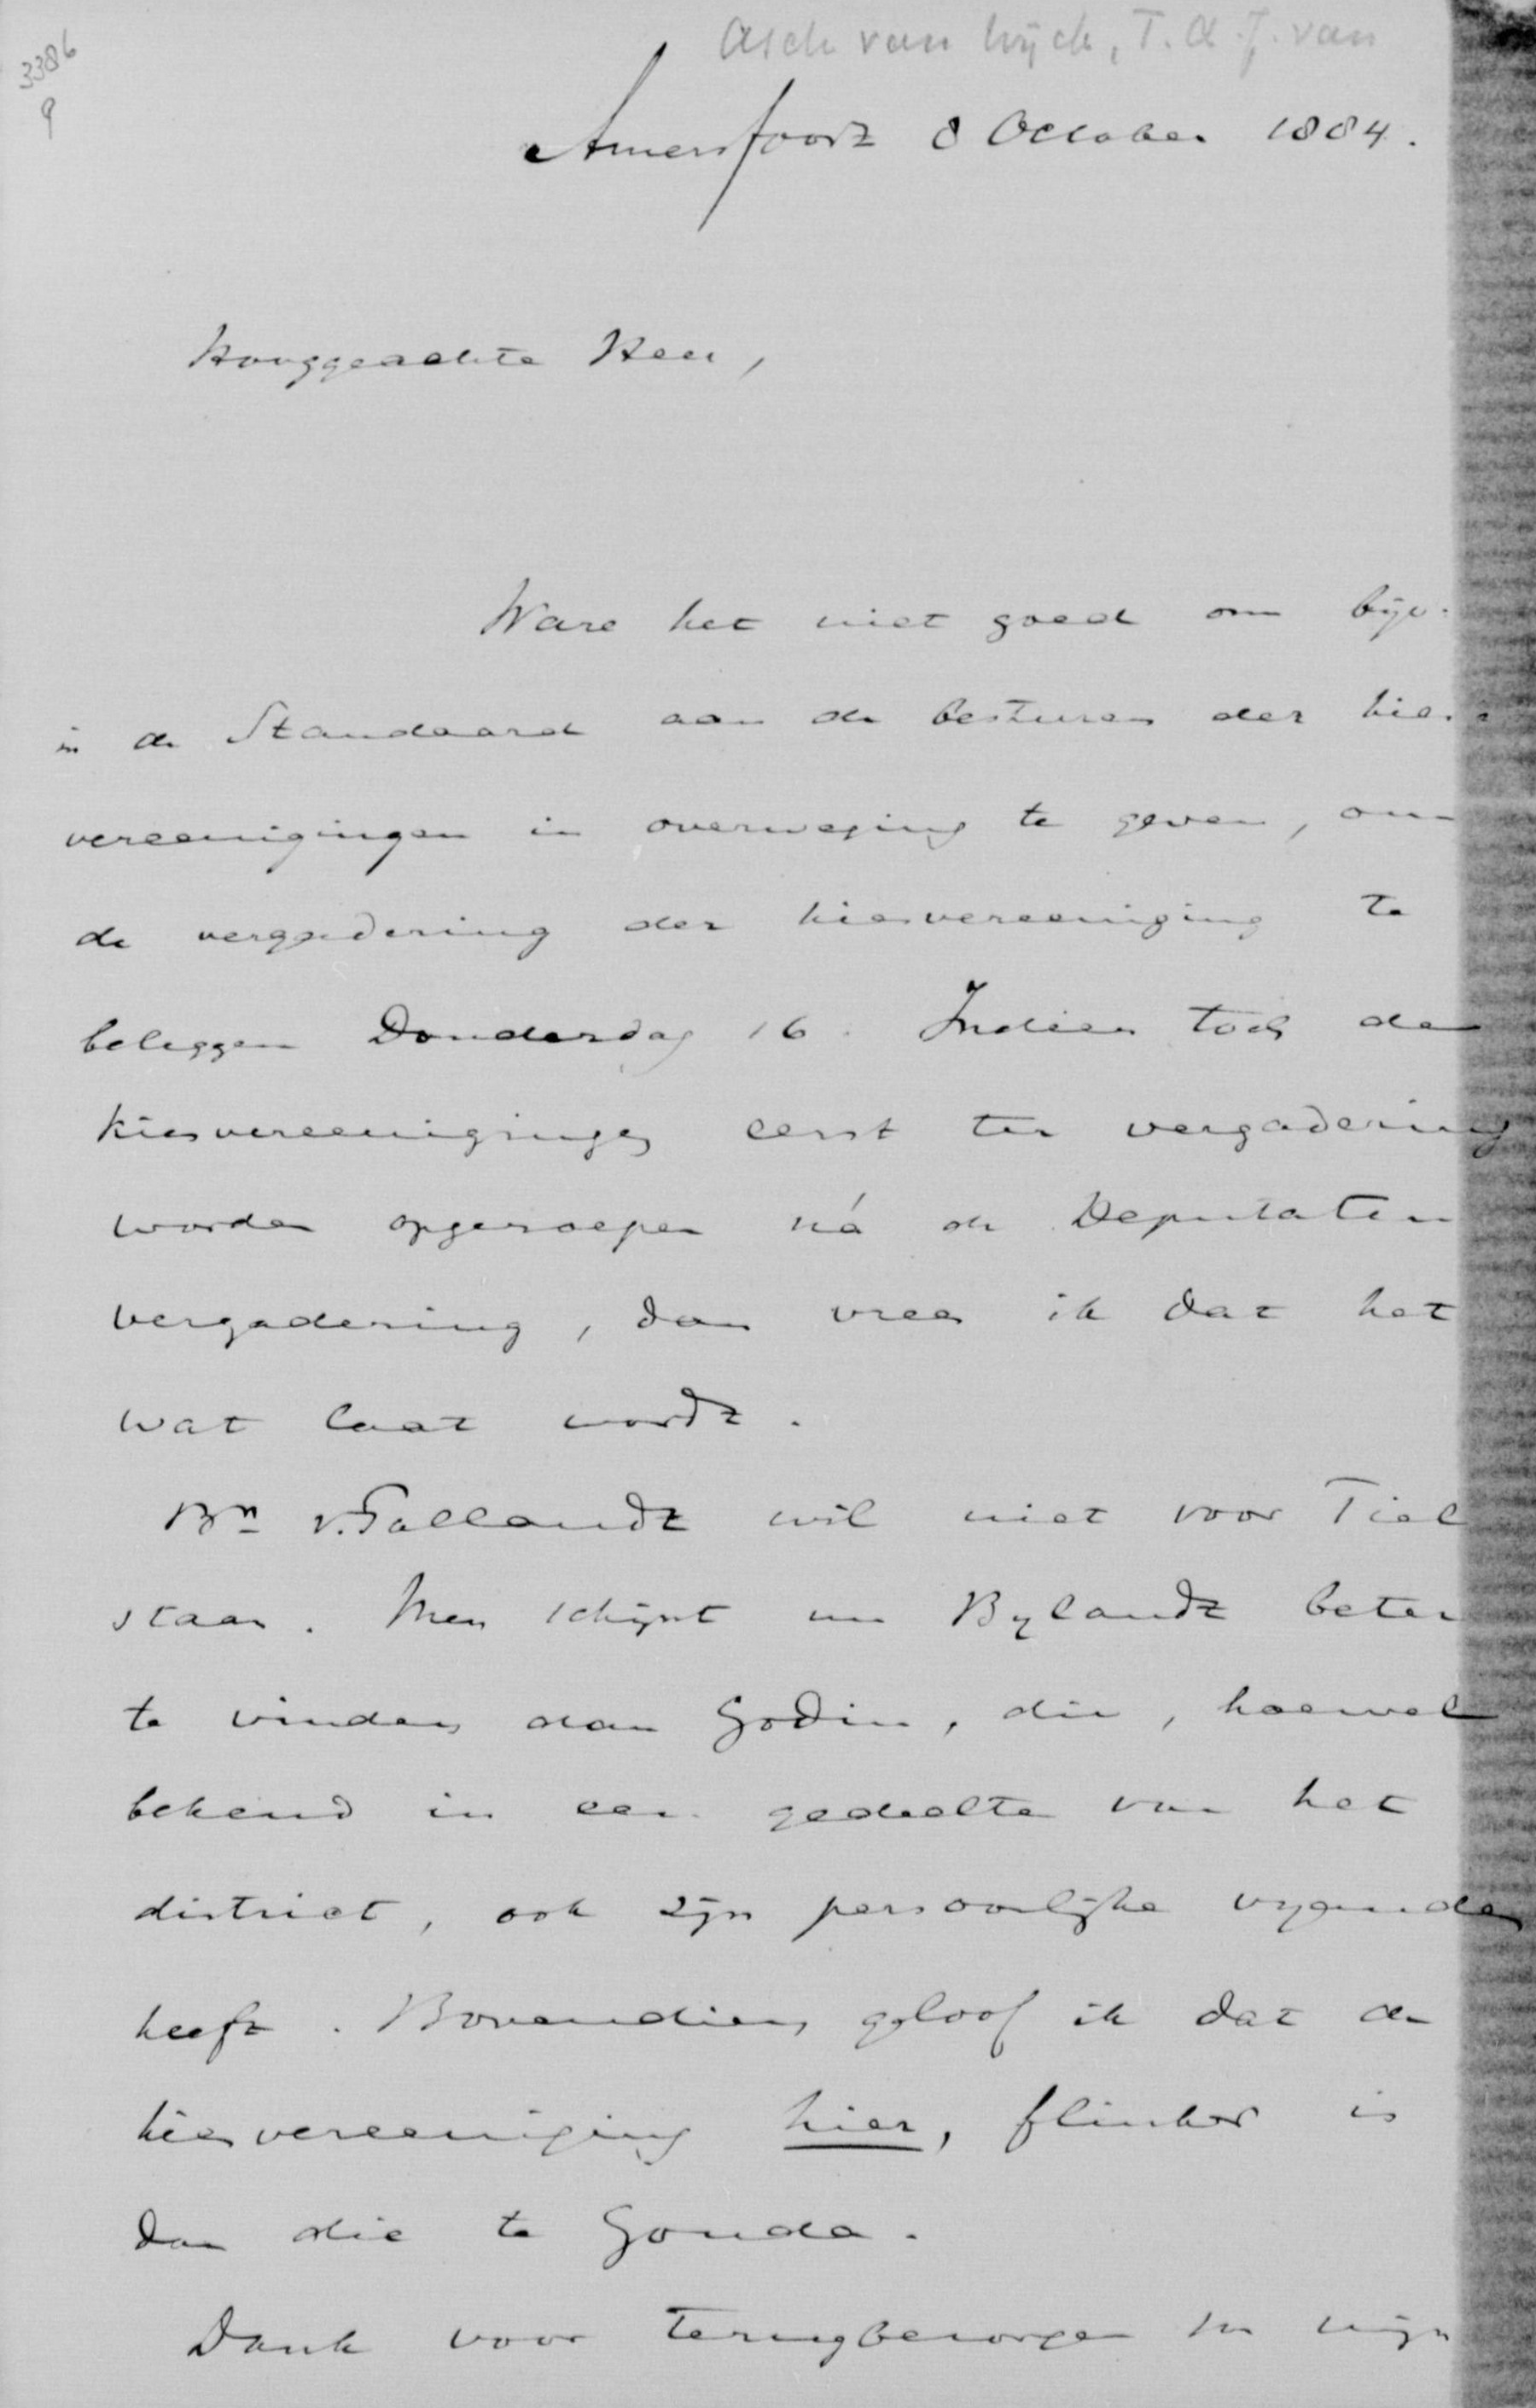 3386
9
Asch van Wijck, T. A. J. van
Amersfoort 8 October 1884.
Hooggeachte Heer,
Ware het niet goed om bijv.
in de Standaard aan de besturen der kies-
vereenigingen in overweging te geven, om
de vergadering der kiesvereeniging te
beleggen Donderdag 16. Indien toch de
kiesvereenigingen eerst ter vergadering
worden opgeroepen ná de Deputaten
vergadering, dan vrees ik dat het
wat laat wordt.
Bn v. Pallandt wil niet voor Tiel
staan. Men schijnt nu Bylandt beter
te vinden dan Godin, die, hoewel
bekend in een gedeelte van het
district, ook zijn persoonlijke vyanden
heeft. Bovendien geloof ik dat de
kiesvereeniging hier, flinker is
dan die te Gouda.
Dank voor terugbezorgen mijn